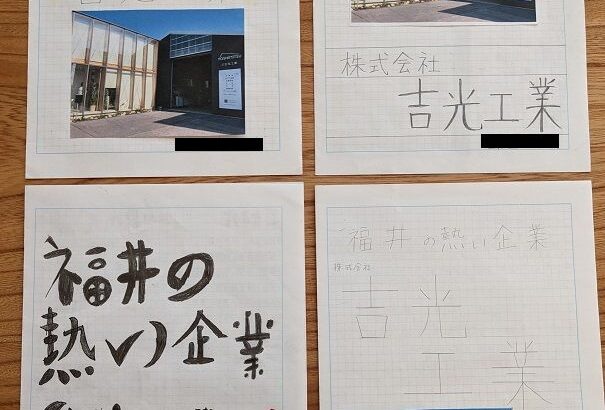 株式会社
吉光工業
福井の
熱い企業
福井の熱い企業
株式会社
吉光
工業